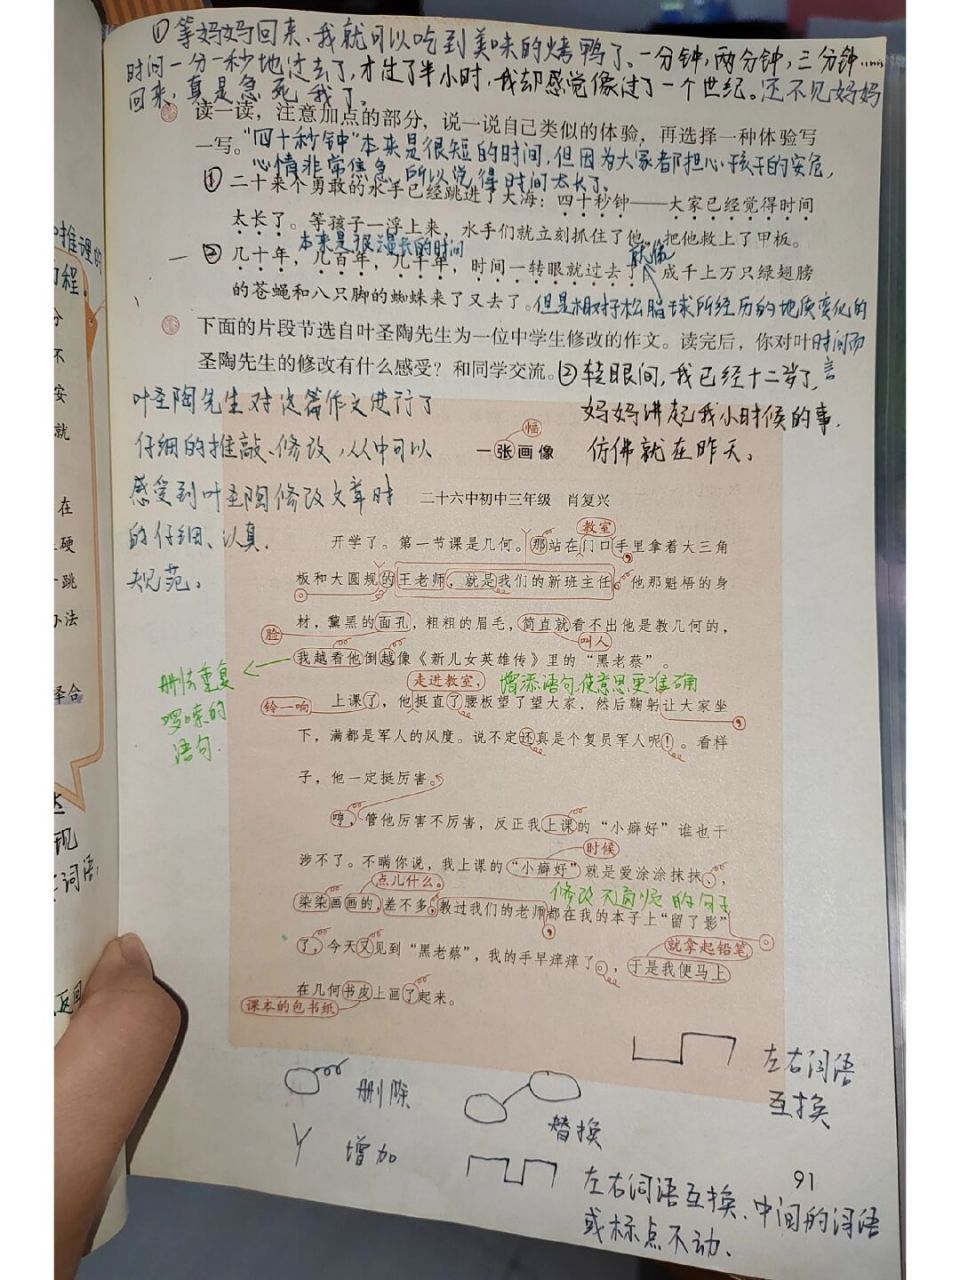 ①等妈妈回来,我就可以吃到美味的烤鸭了。一分钟,两分钟,三分钟……
时间一分一秒地过去了,才过了半小时,我却感觉像过了一个世纪。还不见妈妈
回来,真是急死我了。
读一读,注意加点的部分,说一说自己类似的体验,再选择一种体验写
一写。
"四十秒钟"本来是很短的时间,但因为大家都担心孩子的安危,
心情非常焦急,所以觉得时间太长了。
① 二十来个勇敢的水手已经跳进了大海:四十秒钟——大家已经觉得时间
太长了。等孩子一浮上来,水手们就立刻抓住了他,把他救上了甲板。
本来是很漫长的时间
② 几十年,几百年,几千年,时间一转眼就过去了,成千上万只绿翅膀
的苍蝇和八只脚的蜘蛛来了又去了。
但是相对于松脂球所经历的地质变化的
时间而言
下面的片段节选自叶圣陶先生为一位中学生修改的作文。读完后,你对叶
圣陶先生的修改有什么感受?和同学交流。
②转眼间,我已经十二岁了,
妈妈讲起我小时候的事,
仿佛就在昨天。
叶圣陶先生对这篇作文进行了
仔细的推敲、修改,从中可以
感受到叶圣陶修改文章时
的仔细、认真,
规范。
幅
一张画像
二十六中初中三年级 肖复兴
教室
开学了。第一节课是几何。那站在门口手里拿着大三角
板和大圆规的王老师,就是我们的新班主任。他那魁梧的身
材,黧黑的面孔,粗粗的眉毛,简直就看不出他是教几何的,
脸
叫人
我越看他倒越像《新儿女英雄传》里的"黑老蔡"。
删去重复
啰嗦的
语句.
走进教室,
增添语句使意思更准确
铃一响
上课了,他挺直了腰板望了望大家,然后鞠躬让大家坐
下,满都是军人的风度。说不定还真是个复员军人呢!。看样
子,他一定挺厉害。
哼,管他厉害不厉害,反正我上课的"小癖好"谁也干
时候
涉不了。不瞒你说,我上课的"小癖好"就是爱涂涂抹抹、,
点儿什么。
染染画画的,差不多,教过我们的老师都在我的本子上"留了影"
就拿起铅笔
了,今天又见到"黑老蔡",我的手早痒痒了。,于是我便马上
在几何书皮上画了起来。
课本的包书纸
删除
增加
替换
左右词语
互换
左右词语互换,中间的词语
或标点不动.
91
推理的
程.
分
不
安
就
在
硬
跳
办法
择合
达
现
词语
返回